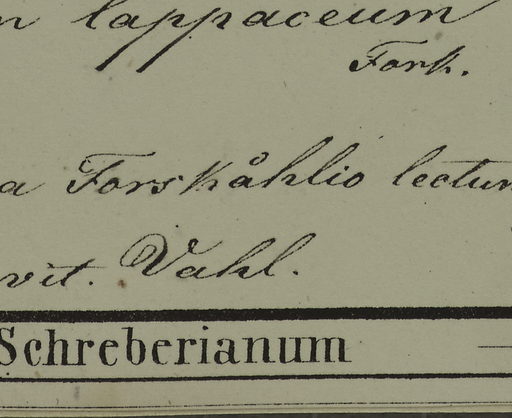 lappaceum
Forsk.
a Forskåhlio lectum
vit. Vahl.
Schreberianum